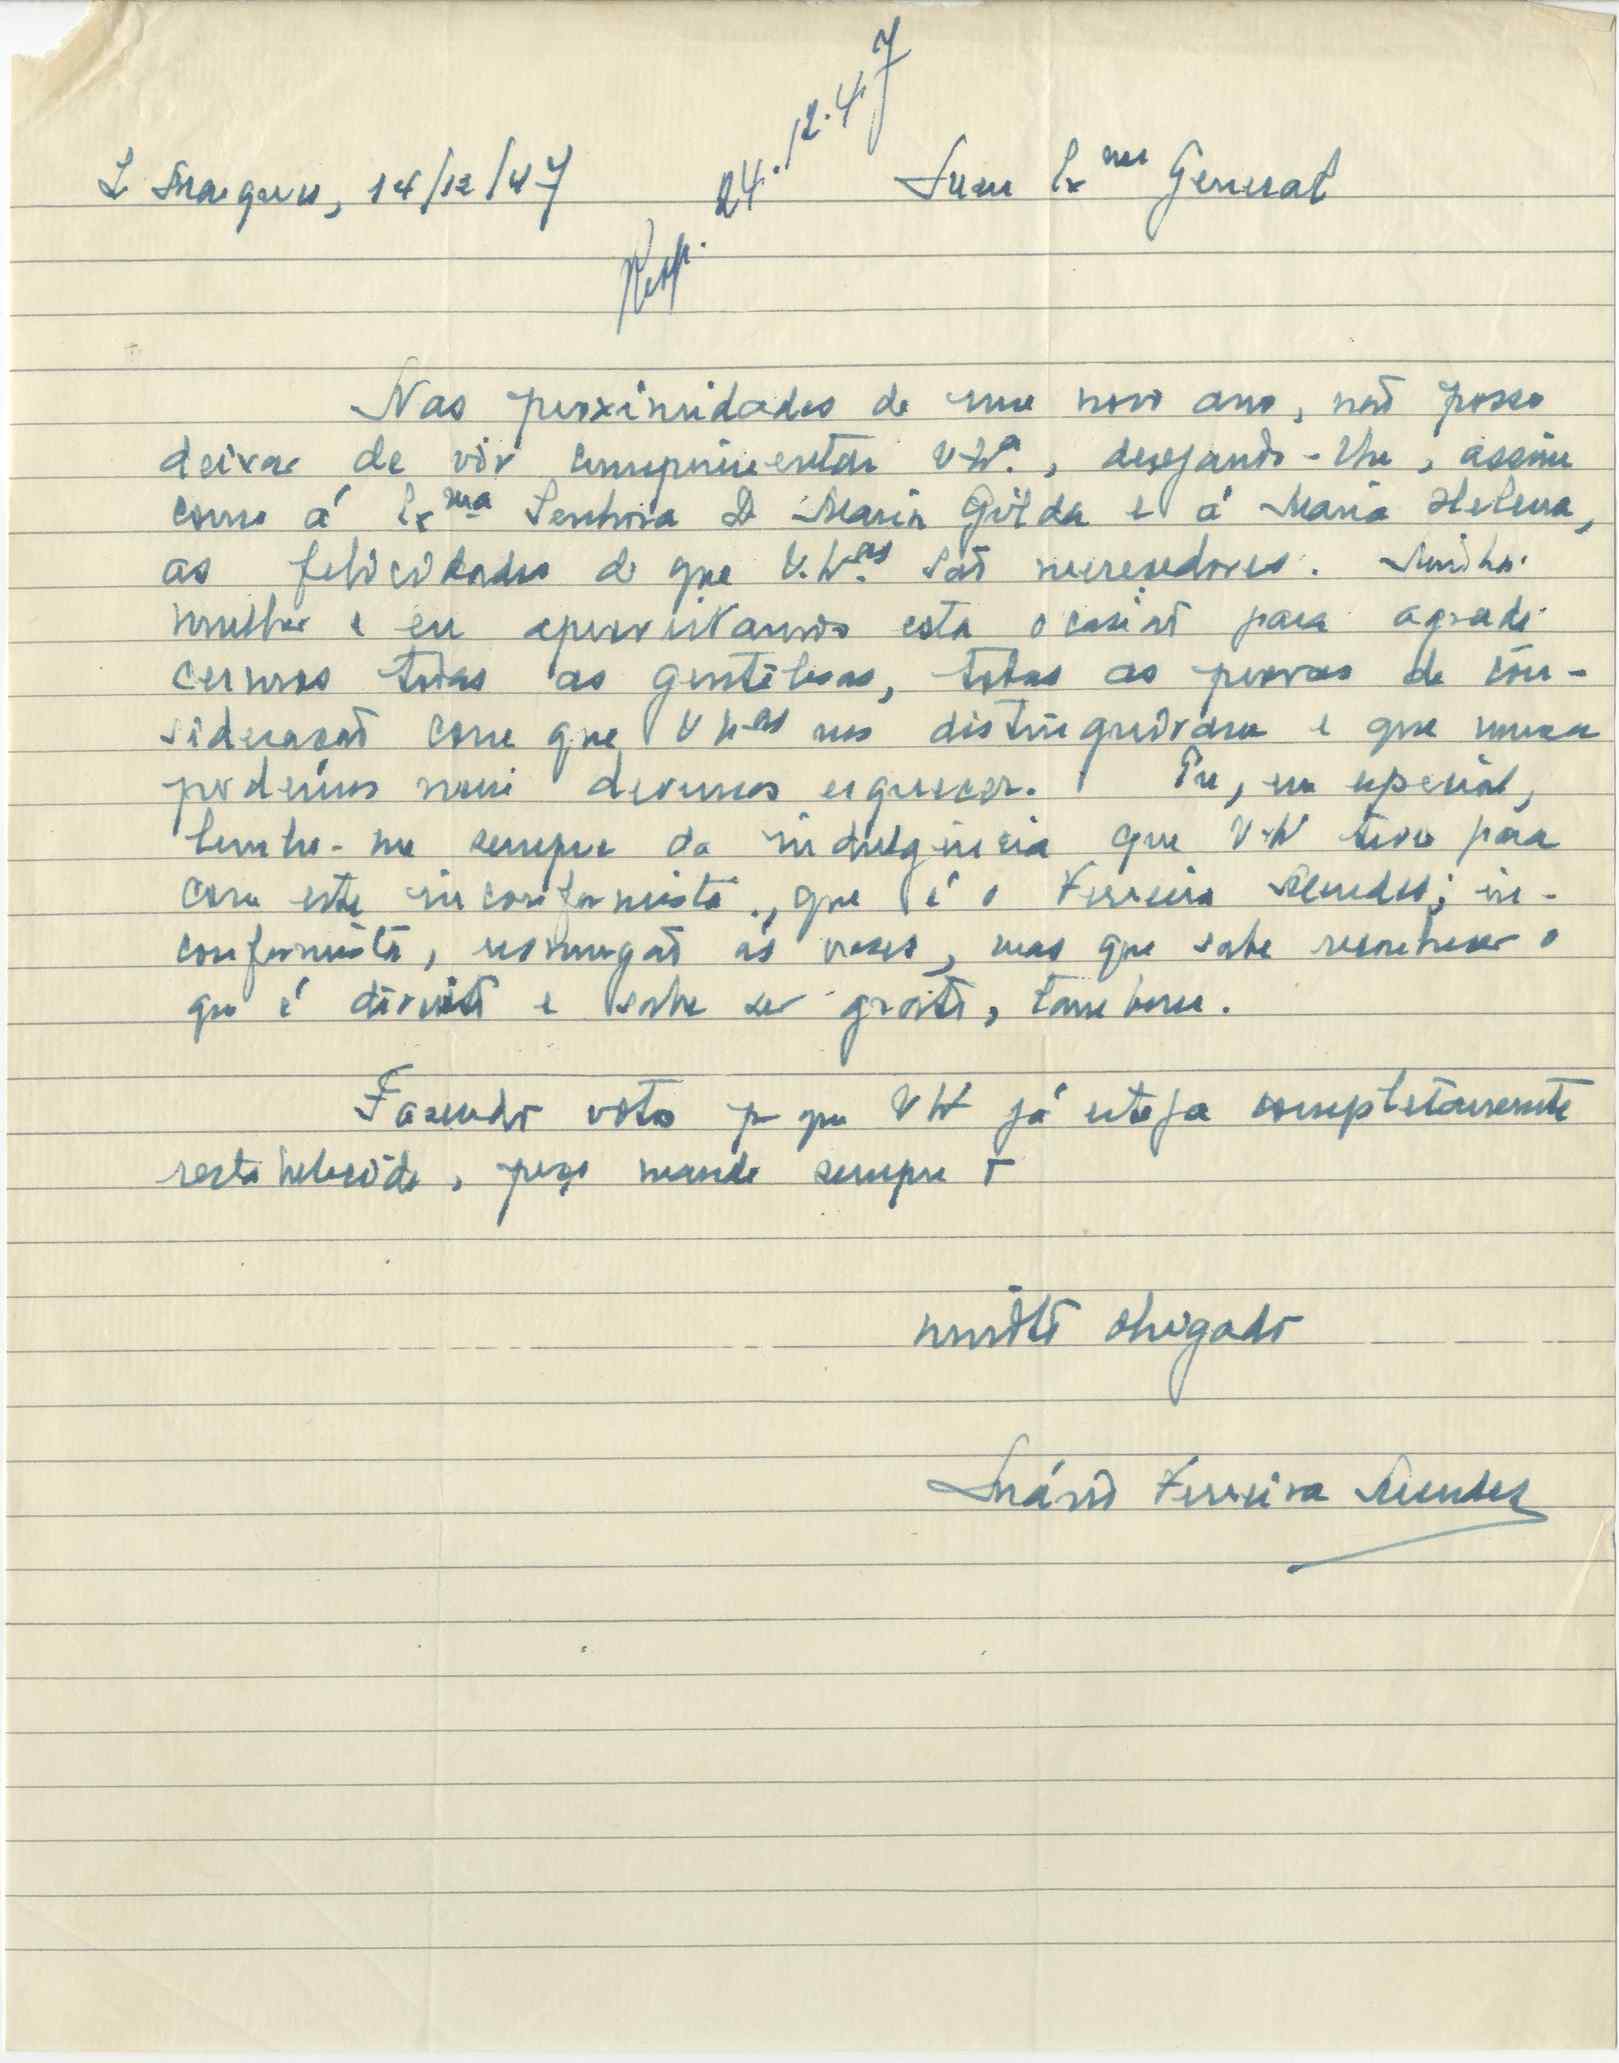 L. Marques, 14/12/47
Resp. 24.12.47
Meu Exmo General
Nas proximidades de um novo ano, não posso
deixar de vir cumprimentar V. Exa., desejando-lhe, assim
como á Exma Senhora D Maria Gilda e á Maria Helena,
as felicidades de que V. Exas. são merecedores. Minha
mulher e eu aproveitamos esta ocasião para agrade
cermos todas as gentilesas, todas as provas de con-
sideração com que V Exas nos distinguiram e que nunca
podemos nem devemos esquecer. Eu, em especial,
lembro-me sempre da indulgencia que V. Ex teve para
com este inconformista, que é o Ferreira Mendes; in-
conformista, resmungão ás vezes, mas que sabe reconhecer o
que é direito e sabe ser grato, tambem.
Fazendo votos p que V Ex já esteja completamente
restabelecido, peço mande sempre o
muito obrigado
Mário Ferreira Mendes